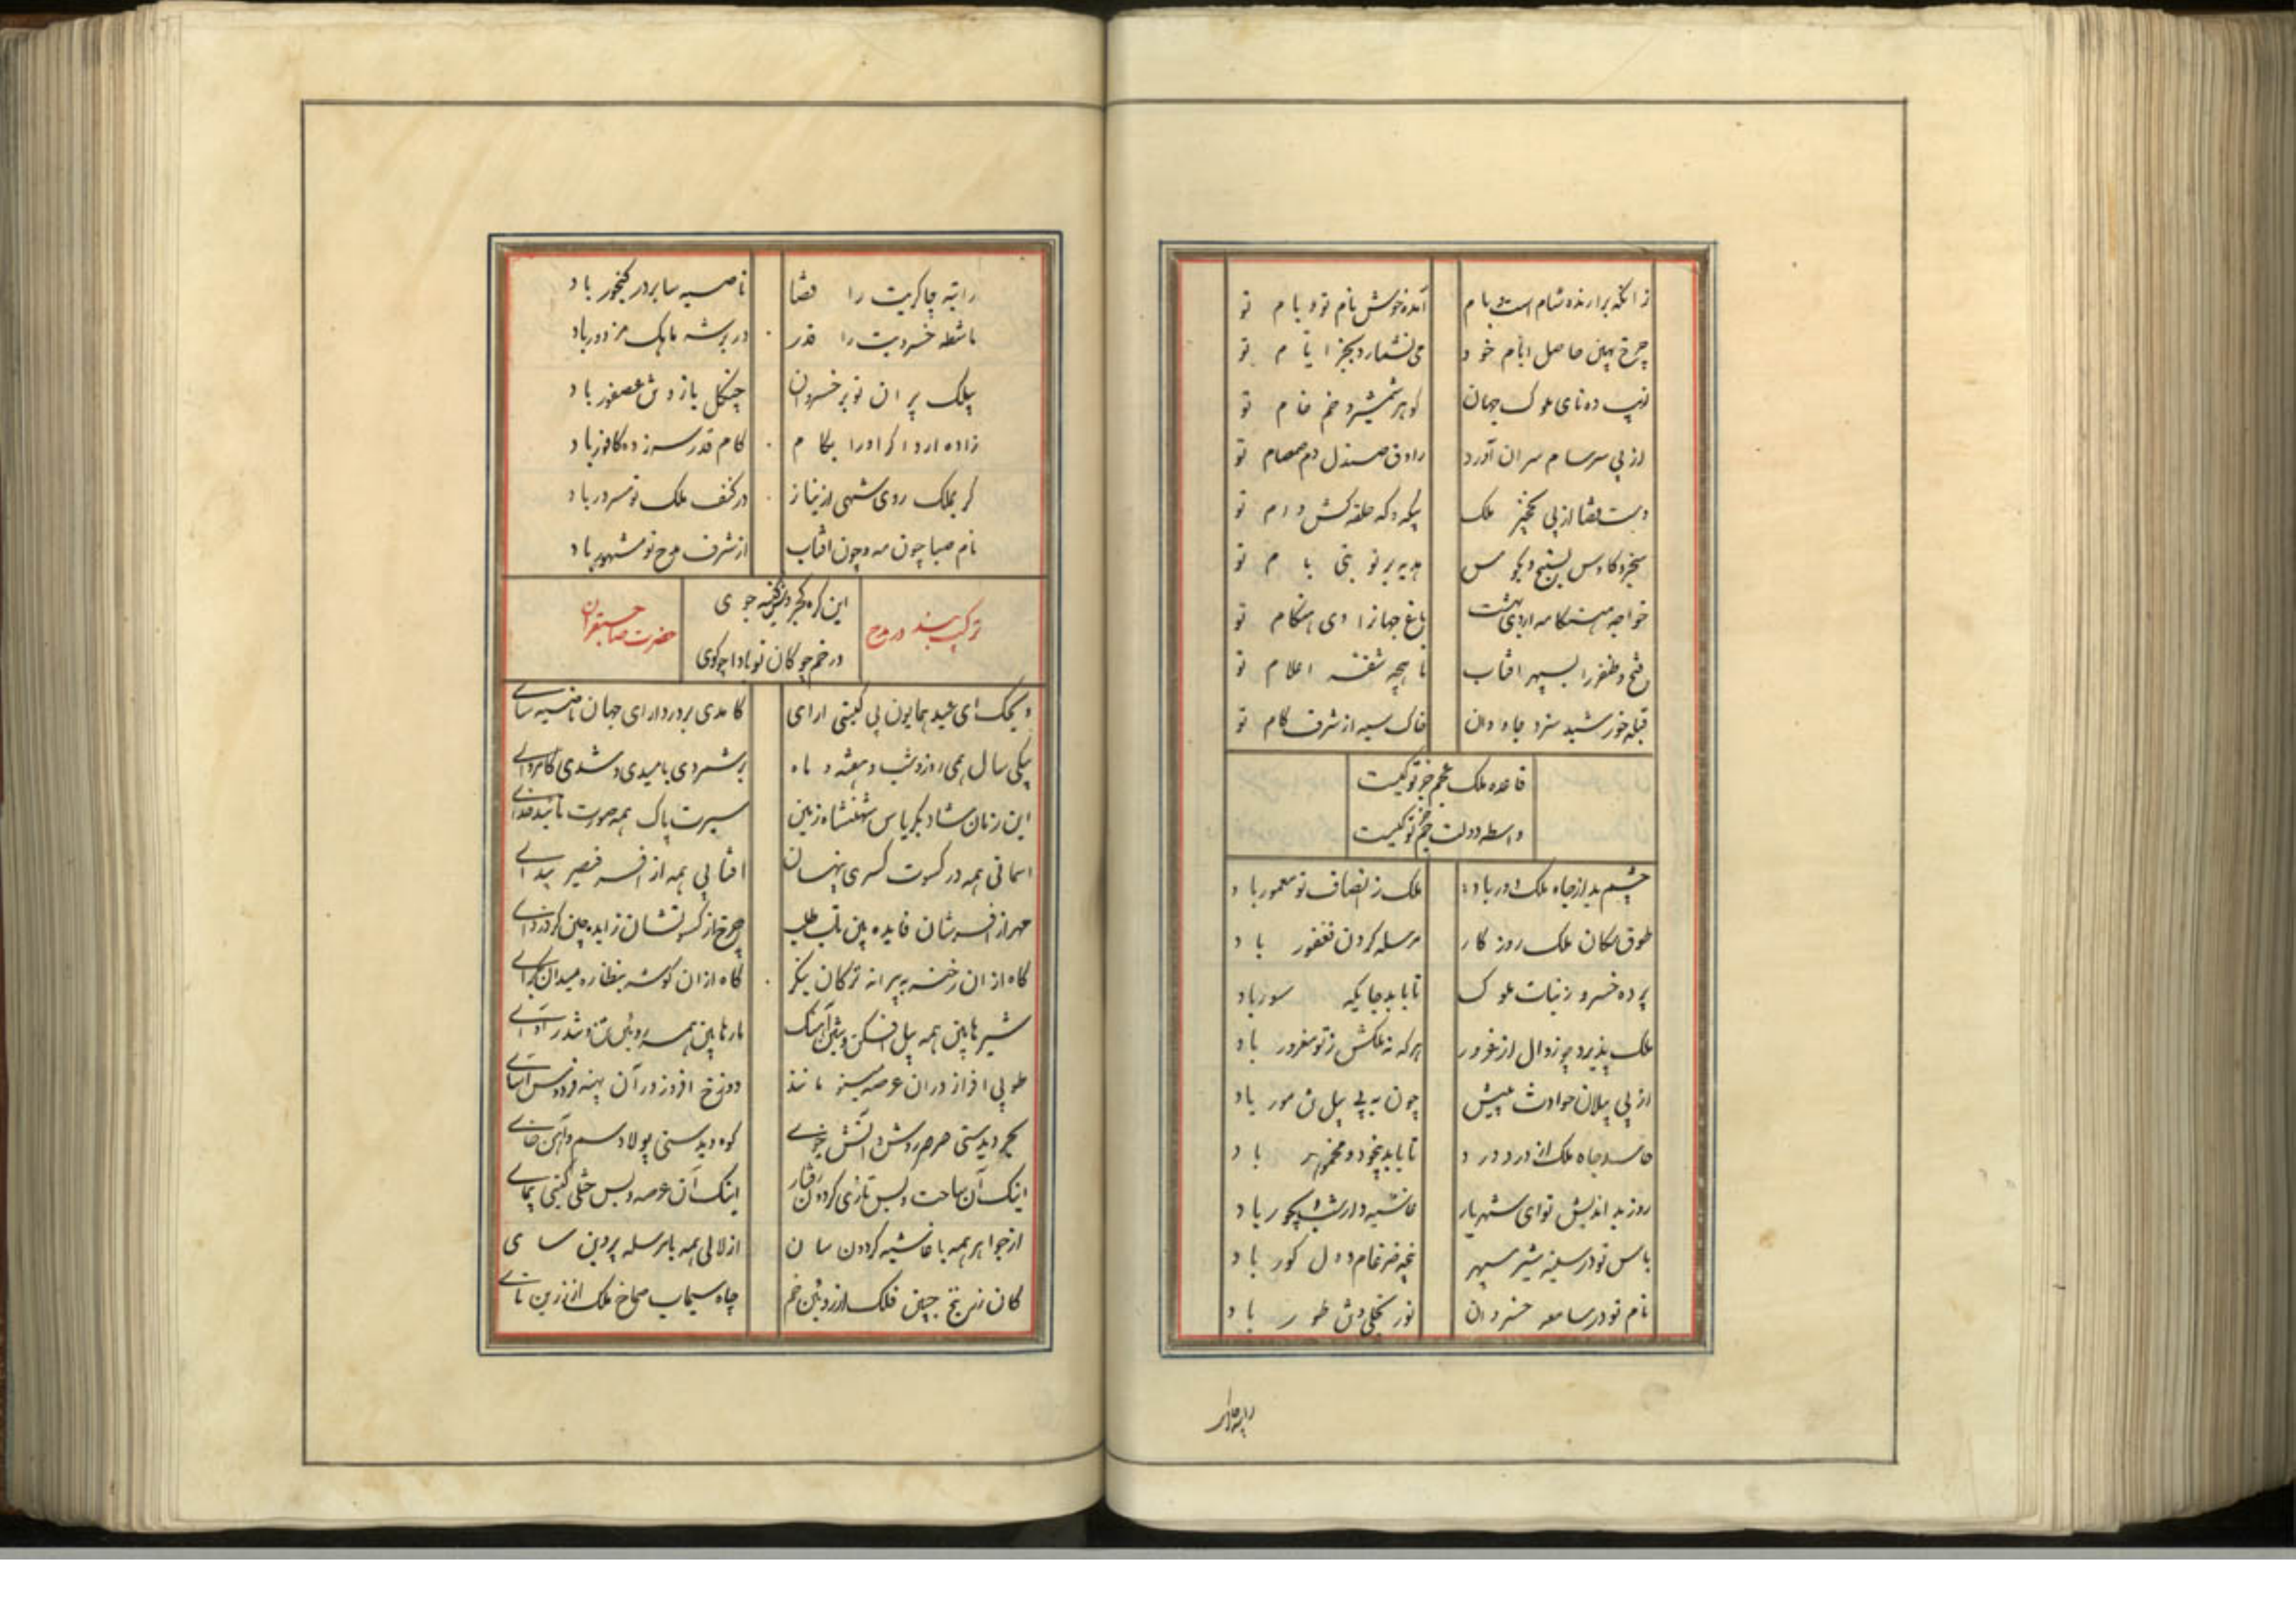 زانکه برازنده شام است بام آمده خوش نام تو و بام تو
چرخ بهین حاصل ایام خود می نشمارد بجز ایام تو
ده نای ملوک جهان گوهر شمشیر و خم خام تو
از پی سرسام سران آورد راوق صندل دم صمصام تو
دست قضا از پی نخجیر ملک که حلقه کش دام تو
سنجر و کاوس هدیه بر تو بام تو
خواجه باغ جهانرا دی هنگام تو
فتح و ظفر را بسپهر افتاب ماهچه شقه اعلام تو
قبله خورشید سزد جاودان خاک سیه از شرف گام تو
قاعده ملک عجم جز تو کیست
واسطه دولت جم جز تو کیست
چشم بد از جاه ملک دور باد ملک ز انصاف تو معمور باد
طوق سکان ملک روزگار مرسله گردن فغفور باد
پرده خسرو ز بنات ملوک تا بابد جایگه سور باد
ملک پذیرد چو زوال از غرور هر که نه ملکش ز تو مغرور باد
از پی پیلان حوادث چون به پی پیل تن مور باد
حاسد جاه ملک از درد درد تا بابد بیخود و مخمور باد
روز بد اندیش تو ای شهریار غاشیه دار شب دیجور باد
باس تو در سینه شیر سپهر پنجه ضرغام و دل گور باد
نام تو در سامعه خسروان نور تجلی وش طور باد
رایته چاکریت را قضا ناصیه سا بر در گنجور باد
ماشطه خسرویت را قدر در برشه ملک مزدور باد
پیلک پران تو بر خسروان چنگل باز وش عصفور باد
زاده اردا گر اورا بکام کام قدر سرزده کافور باد
گر بملک روی شهی از نیاز در کنف ملک تو مسرور باد
نام صبا چون مه و چون افتاب از شرف مدح تو مشهور باد
ترکیب بند در مدح
این کره
در خم چوکان تو بادا چو گوی
حضرت صاحبقران
ویحک ای عید همایون پی گیتی ارای کامدی بر در دارای جهان ناصیه سای
یکی سال همی روز و شب و هفته و ماه برشمردی بامیدی و شدی کامروای
این زمان شاد بکریاس شهنشاه زمین سیرت پاک همه صورت تائید خدای
اسمانی همه در کسوت کسری پنهان افتابی همه از افسر قیصر پیدای
مهر از افسرشان فایده بین تاب طلب چرخ از کسوتشان زایده چین گرد زدای
گاه از آن رخنه به پیرانه ترکان بنگر گاه از ان گوشه بنظاره میدان بگرای
شیرها بین همه پیل افکن و پیل آهنگ مارها بین همه روئین تن و تندر آوای
طوبی افراز دران عرصه مینو مانند دوزخ افروز در آن پهنه فردوس آسای
دیدستی صرصر روش و آتش خوی کوه دیدستی پولاد سم و آهن خای
اینک آن ساحت و بس تازی گردون رفتار اینک آن عرصه و بس ختلی گیتی پیمای
از جواهر همه با غاشیه گردون سان از لالی همه با مرسله پروین سای
کان زرنیخ جبین فلک از روئین خم چاه سیماب صماخ ملک از زرین نای